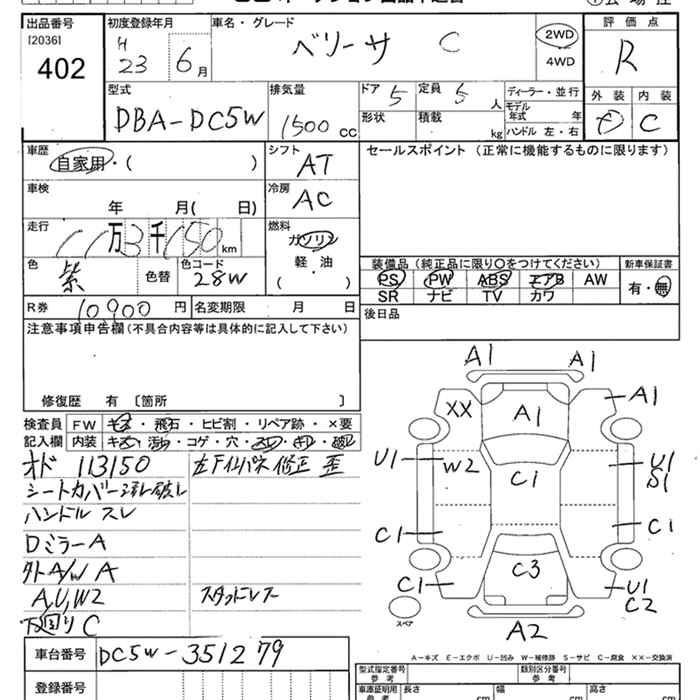 出品番号
[2036]
402
初度登録年月
H
23 6月
車名・グレード
ベリーサ C
2WD
4WD
評価点
R
外装 内装
C
型式
DBA-DC5W
排気量
1500 CC
ドア 5
定員 5 人
形状
積載 kg
ディーラー・並行
モデル年式 年
ハンドル 左・右
車歴
自家用・( )
シフト
AT
セールスポイント (正常に機能するものに限ります)
車検
年 月( 日)
冷房
AC
走行
11万3千150km
燃料
ガソリン
軽・油
( )
色
紫
色替
色コード
28W
装備品 (純正品に限り○をつけてください)
PS PW ABS エアB AW
SR ナビ TV カワ
新車保証書
有・無
R券 10900円
名変期限 月 日
後日品
注意事項申告欄(不具合内容等は具体的に記入して下さい)
修復歴 有 [箇所 ]
検査員記入欄
FW キズ・飛石・ヒビ割・リペア跡・×要
内装 キズ・汚れ・コゲ・穴・スレ・キレ・破れ
オド 113150
左Fインパネ修正 歪
シートカバー汚れ破れ
ハンドル スレ
Dミラー A
外A/W A
A,U,W2
スタッドレス
下回り C
車台番号 DC5W-351279
登録番号
A1 A1
XX A1 A1
U1 W2 C1 U1
S1
C1 C1
C1 C3 U1
C2
スペア
A2
A-キズ E-エクボ U-凹み W-補修跡 S-サビ C-腐食 XX-交換済
型式指定番号
参考
類別区分番号
参考
車庫証明用
参考
長さ cm
幅 cm
高さ cm